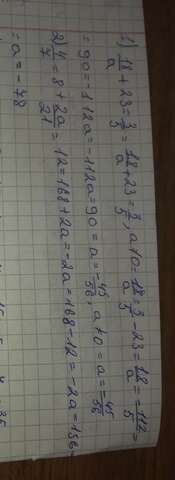 1) 18/a + 23 = 3/5 = 18/a + 23 = 3/5, a≠0 = 18/a = 3/5 - 23 = 18/a = -112/5 =
= 90 = -112a = -112a = 90 = a = -45/56, a≠0 = a = -45/56
2) 4/7 = 8 + 2a/21 = 12 = 168 + 2a = -2a = 168 - 12 = -2a = 156 =
= a = -78